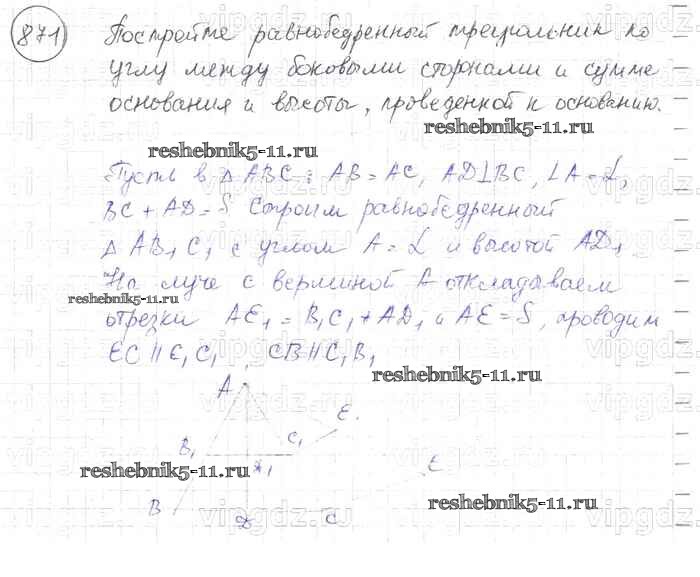 871
Постройте равнобедренный треугольник по
углу между боковыми сторонами и сумме
основания и высоты, проведенной к основанию.
reshebnik5-11.ru
reshebnik5-11.ru
Пусть в △ABC: AB = AC, AD⊥BC, ∠A = α,
BC + AD = S Строим равнобедренный
△ AB₁C₁ с углом A = α и высотой AD₁.
На луче с вершиной A откладываем
reshebnik5-11.ru
отрезки AE₁ = B₁C₁ + AD₁ и AE = S, проводим
EC ∥ E₁C₁, CB ∥ C₁B₁
reshebnik5-11.ru
A
E.
B₁ C₁
reshebnik5-11.ru
E
B D C
reshebnik5-11.ru
vipgdz.ru